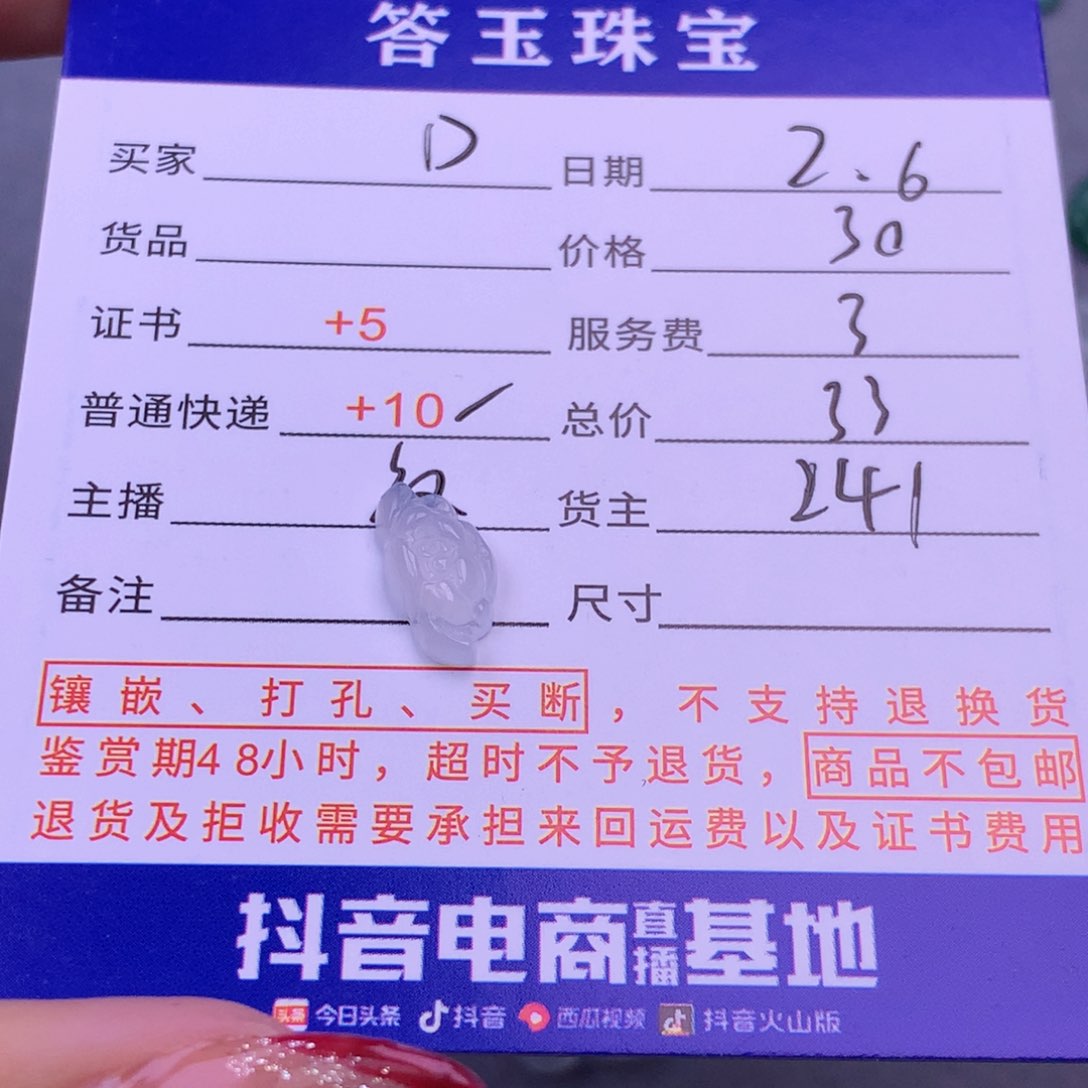 答玉珠宝
买家 D 日期 2.6
货品 价格 30
证书 +5 服务费 3
普通快递 +10 / 总价 33
主播 货主 241
备注 尺寸
镶嵌、打孔、买断，不支持退换货
鉴赏期48小时，超时不予退货，商品不包邮
退货及拒收需要承担来回运费以及证书费用
抖音电商直播基地
头条 今日头条 抖音 西瓜视频 抖音火山版